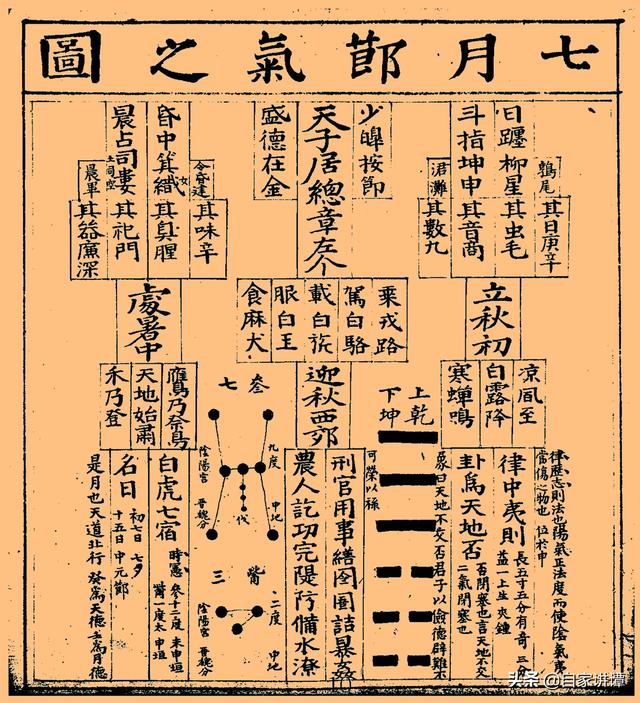 七月節氣之圖
鶉尾
其日庚辛
日躔柳星
其虫毛
斗指坤申
其音商
涒灘
其數九
立秋初
涼風至
白露降
寒蟬鳴
少皡按節
天子居總章左个
盛德在金
乘戎路
駕白駱
載白旂
服白玉
食麻犬
迎秋西郊
其味辛
昏中箕
其臭腥
晨占司婁
其祀門
晨畢
其器廉深
處暑中
鷹乃祭鳥
天地始肅
禾乃登
律歷志則法也陽氣正法度而使陰氣夷
當傷之物也
位於申
律中夷則
長五寸五分有奇
三分
益一上生夾鍾
卦爲天地否
否閉塞也言天地不交
二氣閉塞也
上乾
下坤
彖曰天地不交否君子以儉德辟難不
可榮以祿
刑官用事繕囹圄詰暴姦
農人訖功完隄防備水潦
參
七
九度
申地
伐
陰陽宮
晋魏分
觜
三
二度
申地
陰陽宮
晋魏分
白虎七宿
時憲
參十二度
未申垣
觜一度太申垣
名日
初七日
七夕
十五日
中元節
是月也天道北行
癸爲天德壬爲月德
头条 @自家班潭